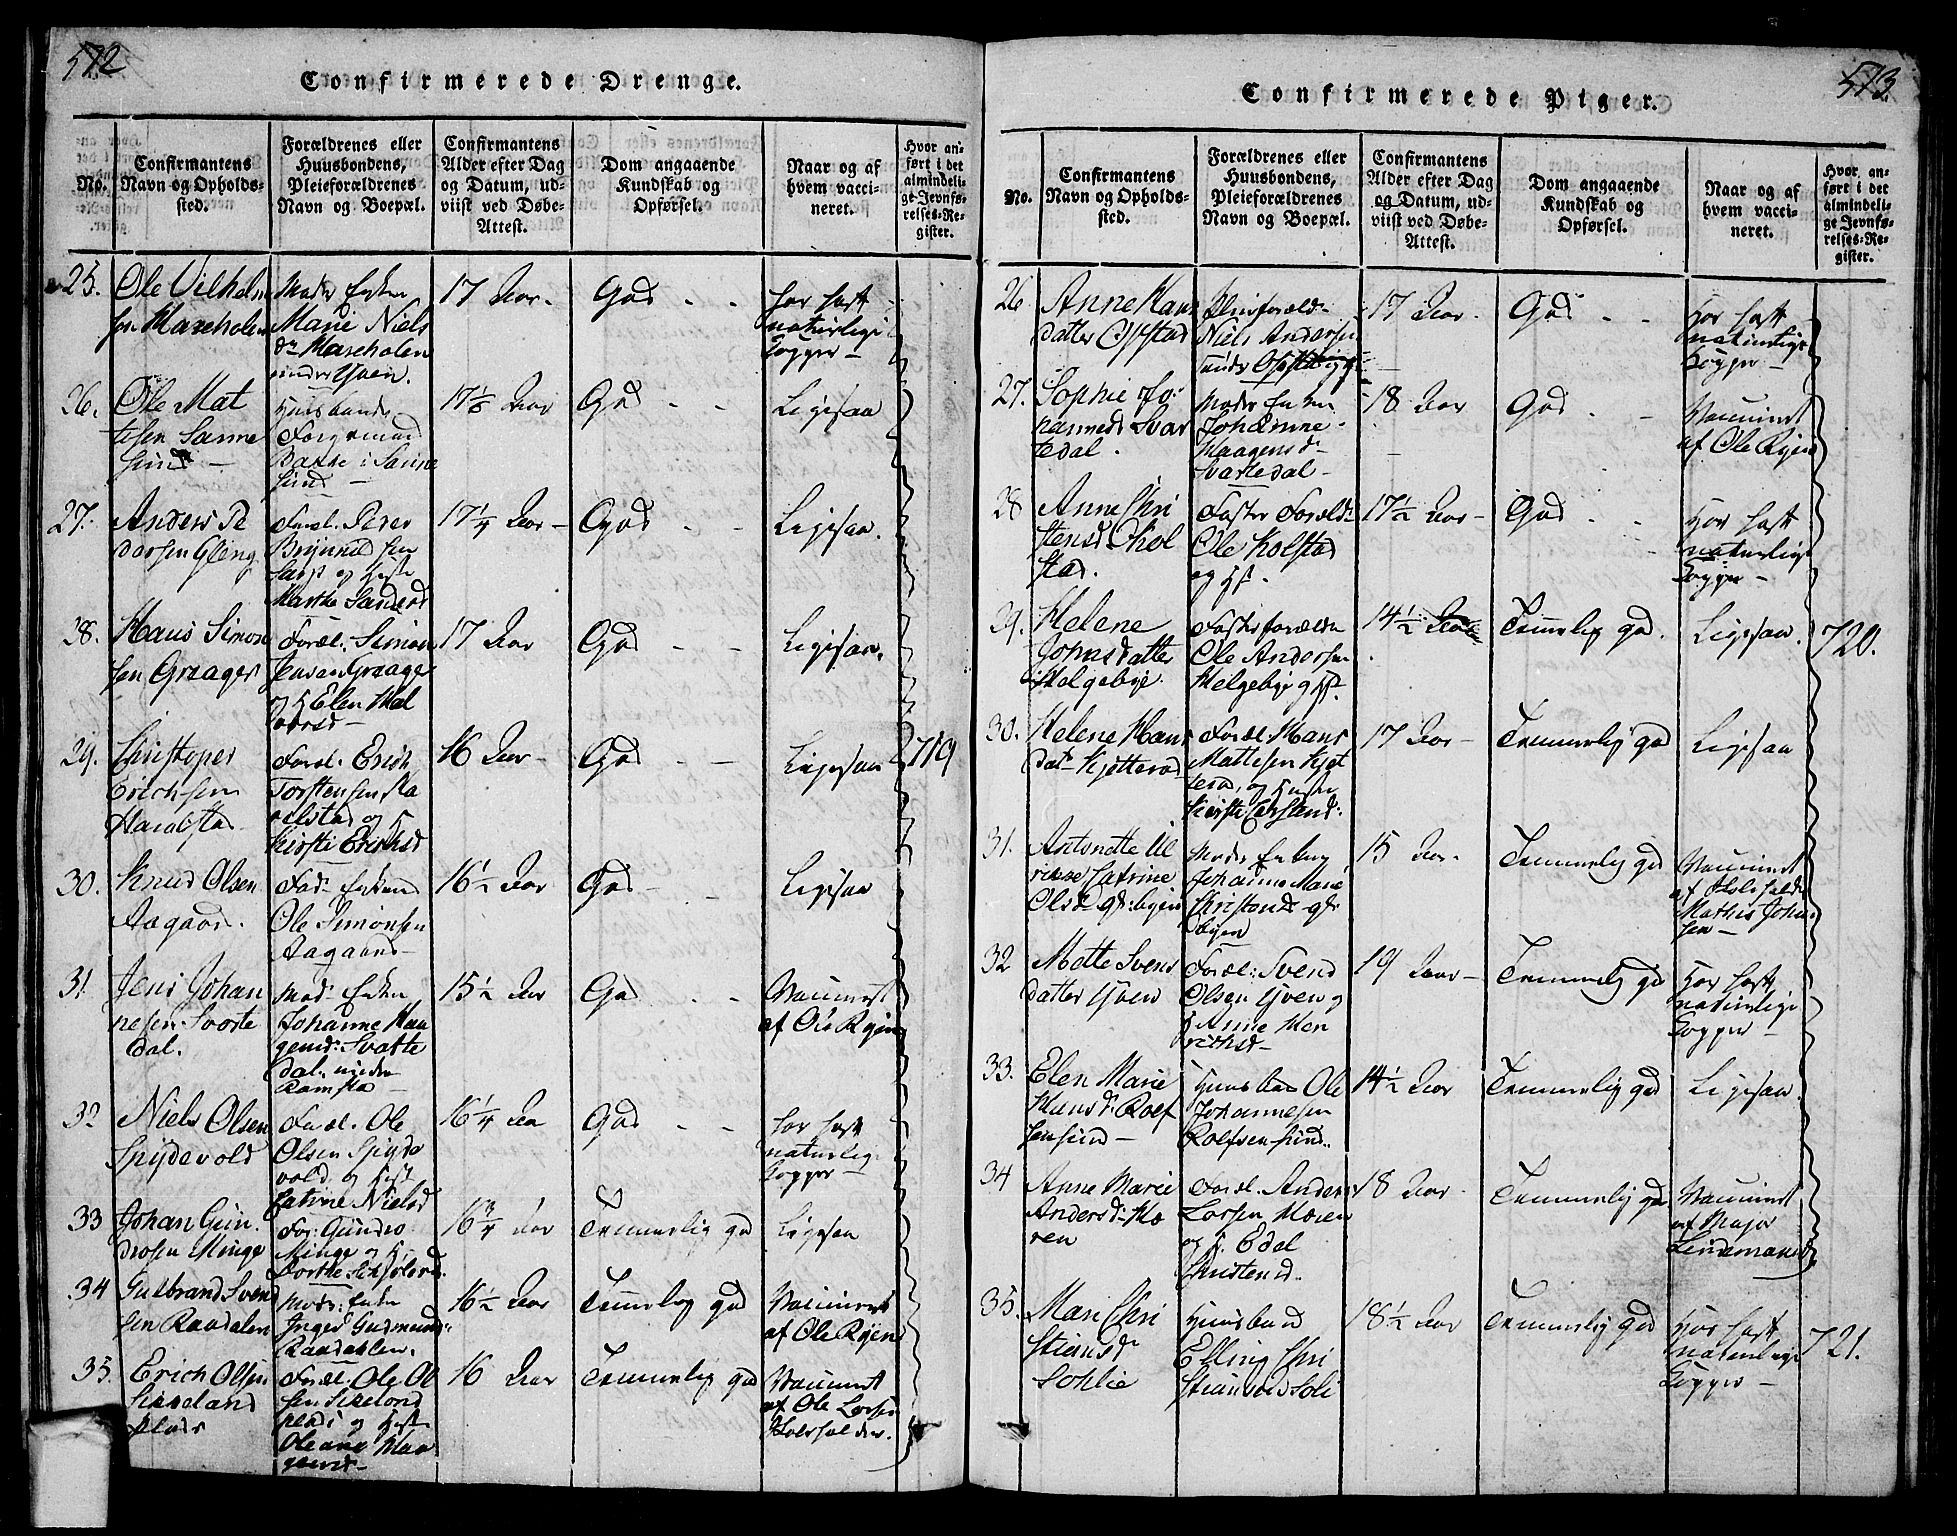 572
Confirmerede Drenge.
No.
Confirmantens
Navn og Opholds-
sted.
Forældrenes eller
Huusbondens,
Pleieforældrenes
Navn og Boepæl.
Confirmantens
Alder efter Dag
og Datum, ud-
viist ved Døbe-
Attest.
Dom angaaende
Kundskab og
Opførsel.
Naar og af
hvem vacci-
neret.
Hvor an-
ført i det
almindeli-
ge Jevnfø-
relses-Re-
gister.
25.
Ole Vilhelm
sen Mareholen
Moder Enken
Marie Niels
dr Mareholen
under Hven.
17 Aar.
God
har havt
naturlige
Kopper
26.
Ole Mat
tesen Sanne
sund
Huusbonde
Sanne
sund
17 1/8 Aar
God
Ligesaa
27.
Anders Pe
dersen Gleng
Foræl. Peder
Brynild sen
og Hust
Marthe
17 1/4 Aar
God
Ligesaa.
28.
Hans Simon
sen Graager
Foræl. Simon
Jensen Graage
og H Elen Hal
vorsd
17 Aar
God
Ligesaa.
29.
Christopher
Erichsen
Haralstad
Foræl. Erich
Torstensen Ha
relstad og H
Kirsti Erichsd
16 Aar
God
Ligesaa
719
30.
Knud Olsen
Aagaard.
Fad. Enkem
Ole Simonsen
Aagaard
16 1/2 Aar
God
Ligesaa
31.
Jens Johan
nesen Svarte
dal.
Mod. Enken
Johanne Haa
gensd. Svarte
dal. under
Ramsta
15 1/2 Aar
God
Vaccineret
af Ole Ryen
32
Niels Olsen
Spydevold
Foræl. Ole
Olsen Spyde
vold og Hust
Catrine Nielsd
16 1/4 Aar
God
har havt
naturlig
Kopper
33
Johan Gun
drosen Minge
For. Gundro
Minge og H
Dorthe
16 3/4 Aar
Temmelig god
Ligesaa
34
Gulbrand Svend
sen Raadalen
Mode: Enke
Inger Gudmunds:
Raadahlen.
16 1/2 Aar
Temmelig god
Vaccineret
af Ole Ryen
35.
Erich Olsen
Plads
Foræl. Ole Ol
sen
og Hust
Oleana Haa
gensd
16 Aar
Temmelig god
Vaccineret
af Ole Larsen
573
Confirmerede Piger.
No.
Confirmantens
Navn og Opholds-
sted.
Forældrenes eller
Huusbondens,
Pleieforældrenes
Navn og Boepæl.
Confirmantens
Alder efter Dag
og Datum, ud-
viist ved Døbe-
Attest.
Dom angaaende
Kundskab og
Opførsel.
Naar og af
hvem vacci-
neret.
Hvor an-
ført i det
almindeli-
ge Jevnfø-
relses-Re-
gister.
26
Anne Hans
datter Opstad
Pleieforæld.
Niels Andersen
17 Aar.
God
Har havt
naturlige
Kopper
27.
Sophie Jo
hannesd Svar
tedal.
Moder Enken
Johanne
Haagensd
Svartedal
18 Aar
God
Vaccineret
af Ole Ryen
28
Anne Chri
stensd Chol
stad.
Foster Foræld.
Ole Kolstad
og H.
17 1/2 Aar
God
Har havt
naturlige
Kopper
29.
Helene
Johnsdatter
Helgebye.
Foster forældre
Ole Andersen
Helgebye og H.
14 1/2 Aar
Temmelig god.
Ligesaa.
720.
30.
Helene Hans
datr Kjølterød
Foræl. Hans
Mattisen Kjøl
terød, og Hustr
Kirsti Carlsend:
17 Aar
Temmelig god
Ligesaa
31.
Antonette Ul
rikke Catrine
Olsd
Moder Enken
Johanne Marie
Christensd
Byen
15 Aar.
Temmelig god
Vaccineret
af
Mathis Johan
sen
32
Mette Svens
datter Hven
Foræl: Svend
Olsen Hven og
H Anne Hen
richsd
19 Aar
Temmelig god
Har havt
naturlige
Kopper
33.
Elen Marie
Hansd. Rolf
sensund
Huusbon Ole
Johannesen
Rolfsensund.
14 1/2 Aar
Temmelig god
Ligesaa.
34
Anne Marie
Andersd. Ho
ren
Foræl. Anders
Larsen Horen
og H. Edel
Christensd.
18 Aar.
Temmelig god
Vaccineret
af Major
Lindemand
35.
Mari Chri
stiansd
Sohlie
Huusbond
Elling Chri
stiansen Soli
18 1/2 Aar
Temmelig god
Har havt
naturlige
Kopper
721.